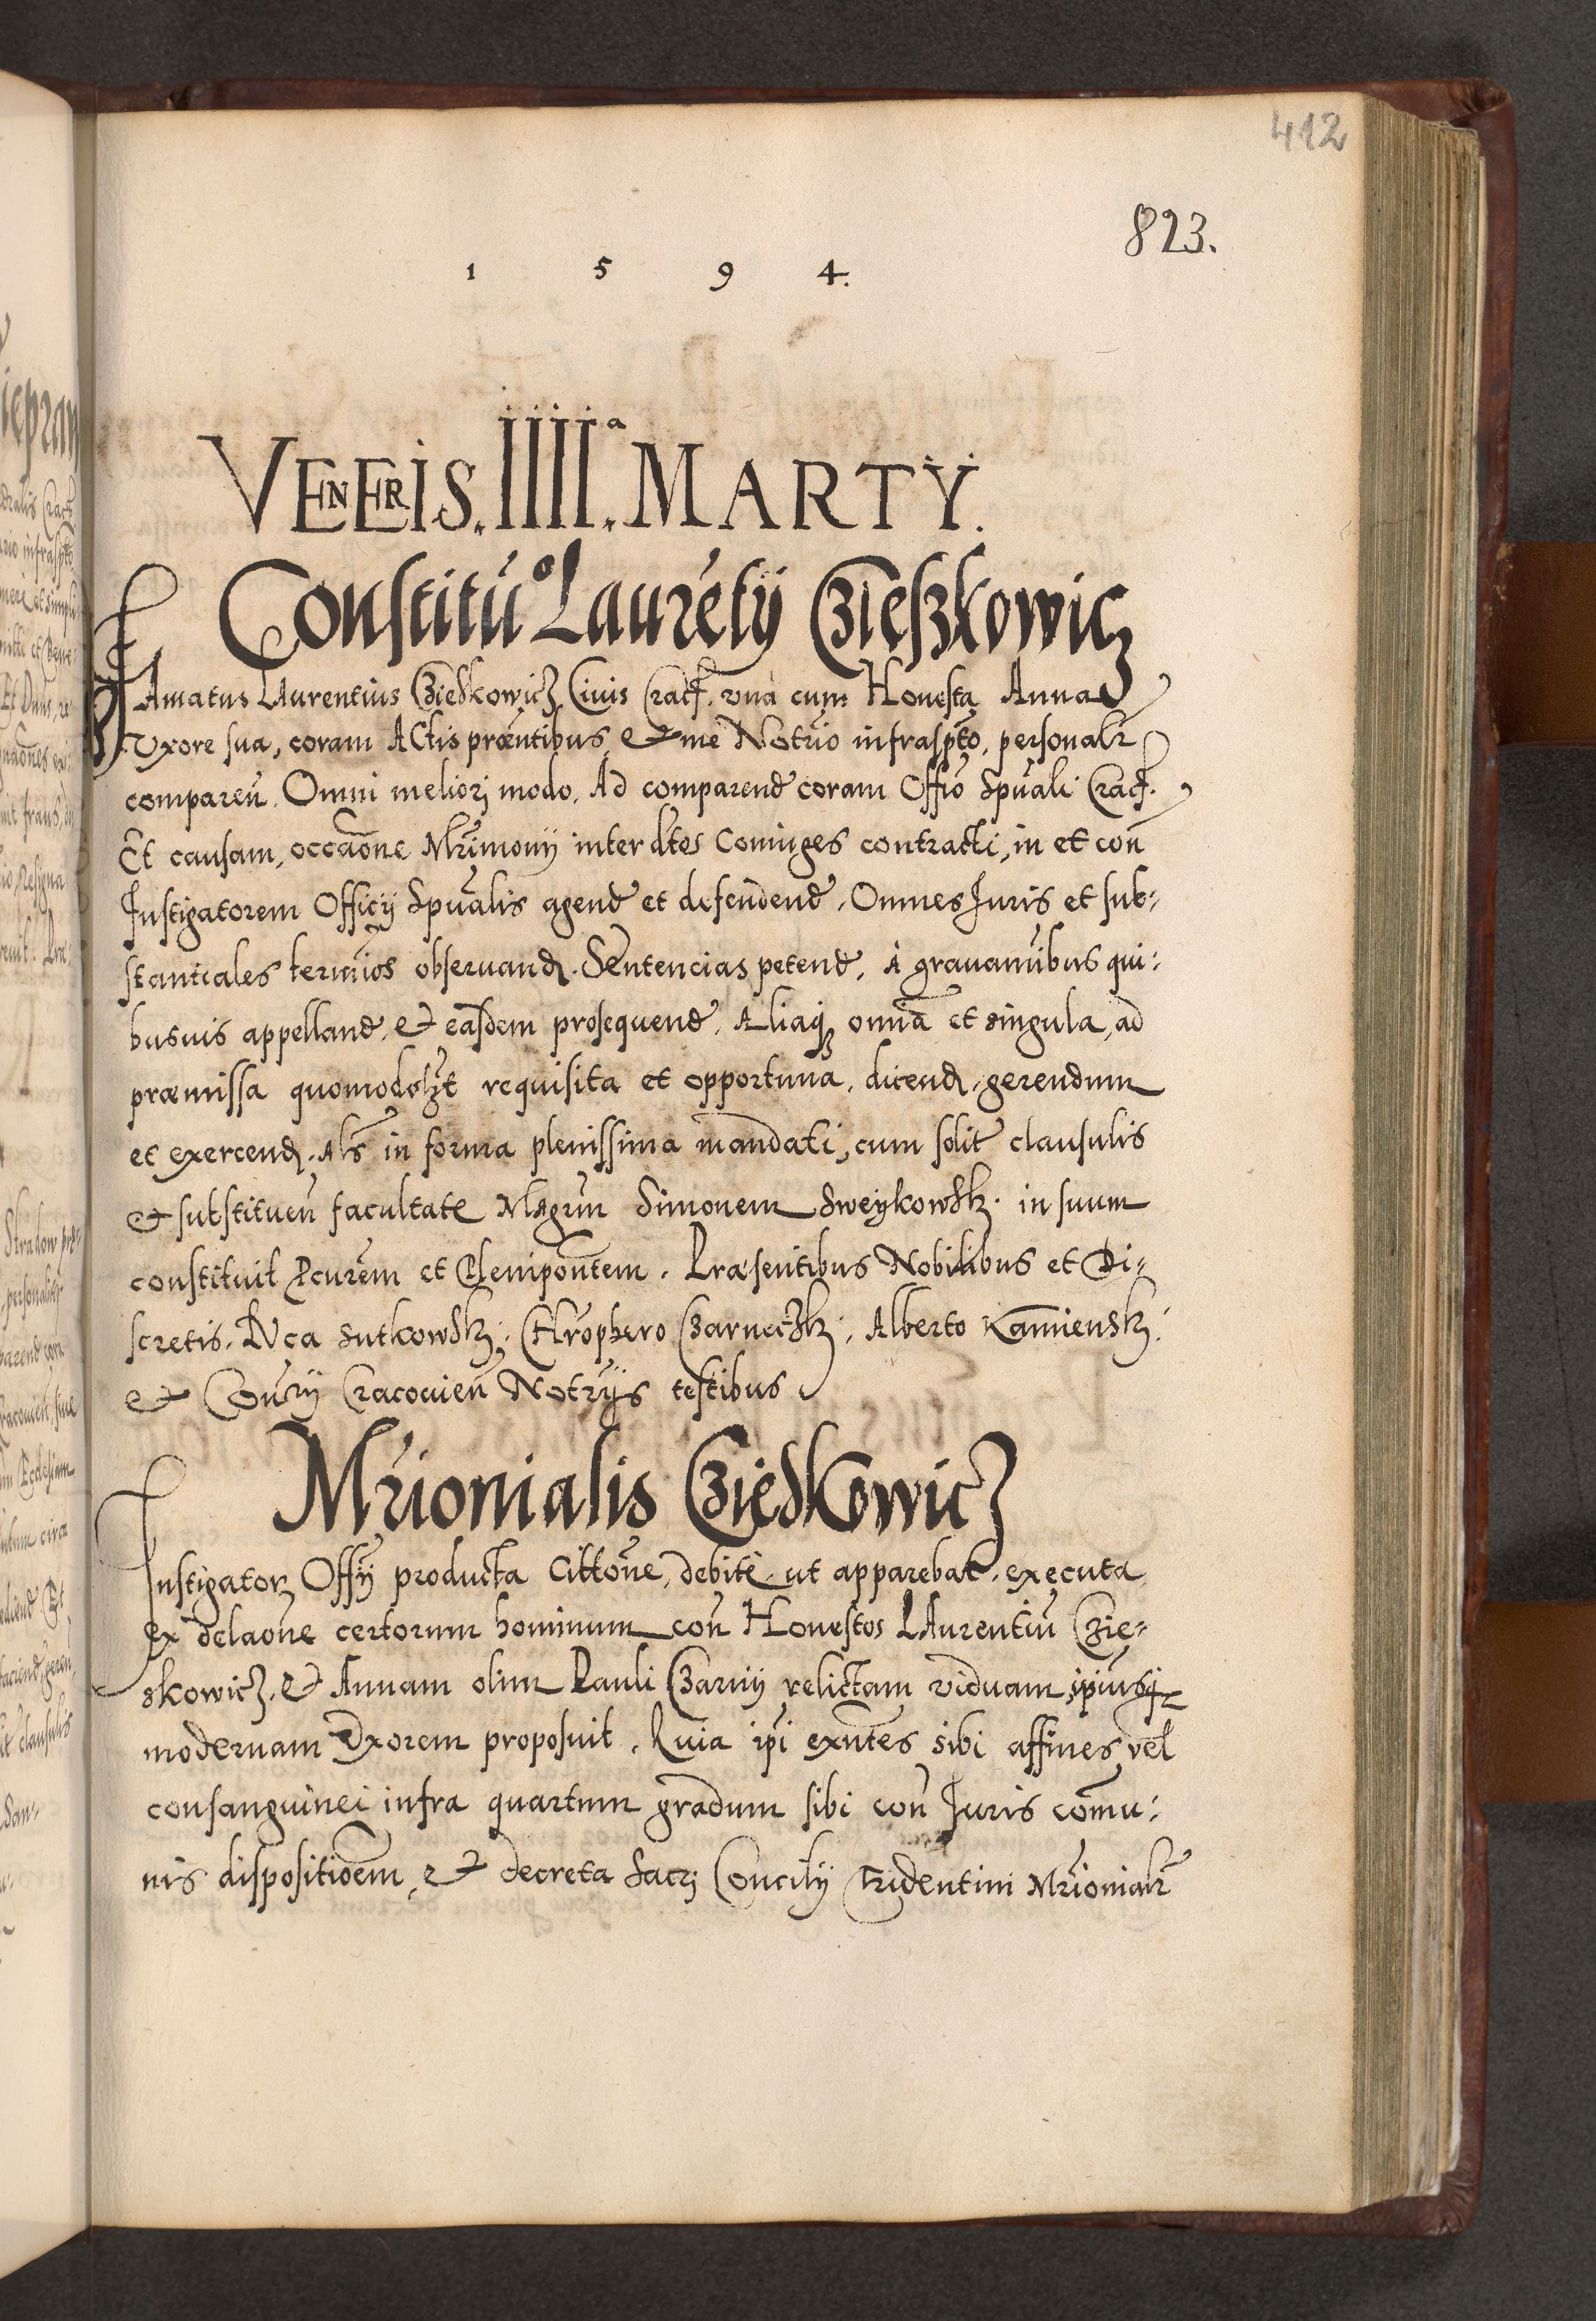 412
823.
1 5 9 4.
VENERIS. IIIIª. MARTY.
Constitũ° Laurẽtÿ Czieszkowicz
FAmatus LAurentius Czieskowicz Ciuis Cracẽ. vna cum Honesta Anna
Vxore sua, coram ACtis præntibus, et me Notrio infrasp̃to, personalr
compareñ. Omni meliori modo. Ad comparend coram Offio Spuali Cracẽ.
Et causam, occãone Mr̃imonÿ inter dtẽs Coniuges contracti, in et coñ
Instigatorem Officÿ Spualis agend et defendend. Omnes Iuris et sub-
stantiales termiõs obseruand. SEntencias petend, A grauamĩbus qui-
busuis appelland, et easdem prosequend. Aliaqʒ omĩa et singula, ad
præmissa quomodolʒt requisita et opportuna, dicend, gerendum
et exercend. Als in forma plenissima mandati, cum solit clausulis
et substitueñ facultate MAgrum Simonem Sweykowsk. in suum
constituit Pcurem et Plenipoñtem. Præsentibus Nobilibus et Di-
scretis. LVca Sutkowsk: CHrophero Czarneczk: Alberto Kamiensk:
et Consrÿ Cracouieñ Notrÿs testibus
Mrionialis Czieskowicz
Instigator Offÿ producta Cittoñe, debite ut apparebat, executa
ex delaoñe certorum hominum coñ Honestos LAurentiũ Czie-
skowicz. et Annam olim Pauli Czarnÿ relictam viduam, ipiusqʒ
modernam Vxorem proposuit. Quia ipi exñtes sibi affines vel
consanguinei infra quartum gradum sibi coñ Iuris com̃u-
nis dispositioẽm, et decreta Sacri Concilÿ Tridentini Mrionialr